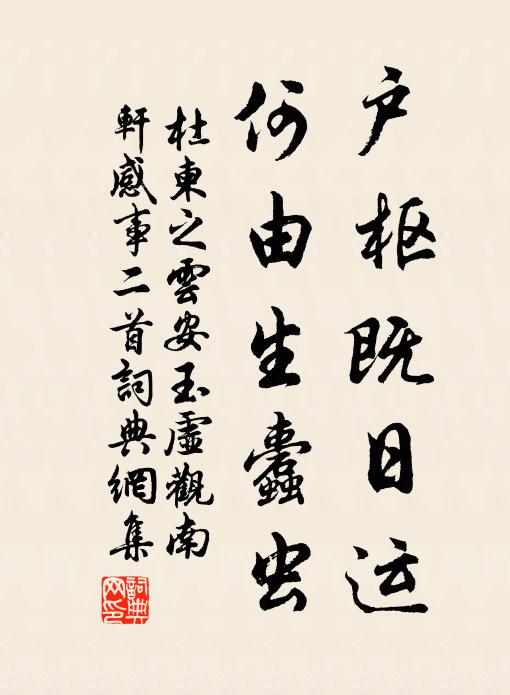 户枢既日运
何由生蠹虫
杜東之雲安玉虛觀南
軒感事二首詞典網集
詞典
网印